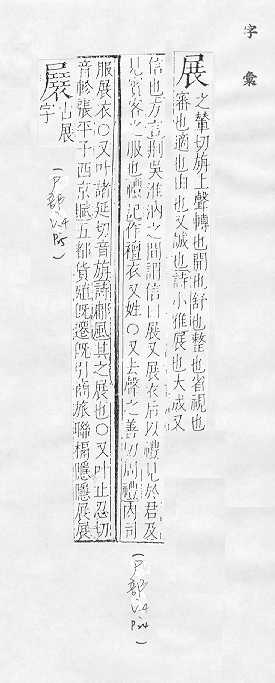 字彙
展
之輦切旃上聲轉也開也舒也整也省視也
審也適也由也又誠也詩小雅展也大成又
信也方言荆吳淮汭之間謂信曰展又展衣后以禮見於君及
見賓客之服也禮記作襢衣又姓○又去聲之善切周禮內司
服展衣○又叶諸延切音旃詩鄘風其之展也○又叶止忍切
音軫張平子西京賦五都貨殖旣遷旣引商旅聯槅隱隱展展
古展
字
(尸部 V.4 P.24)
(尸部 V.4 P.25)